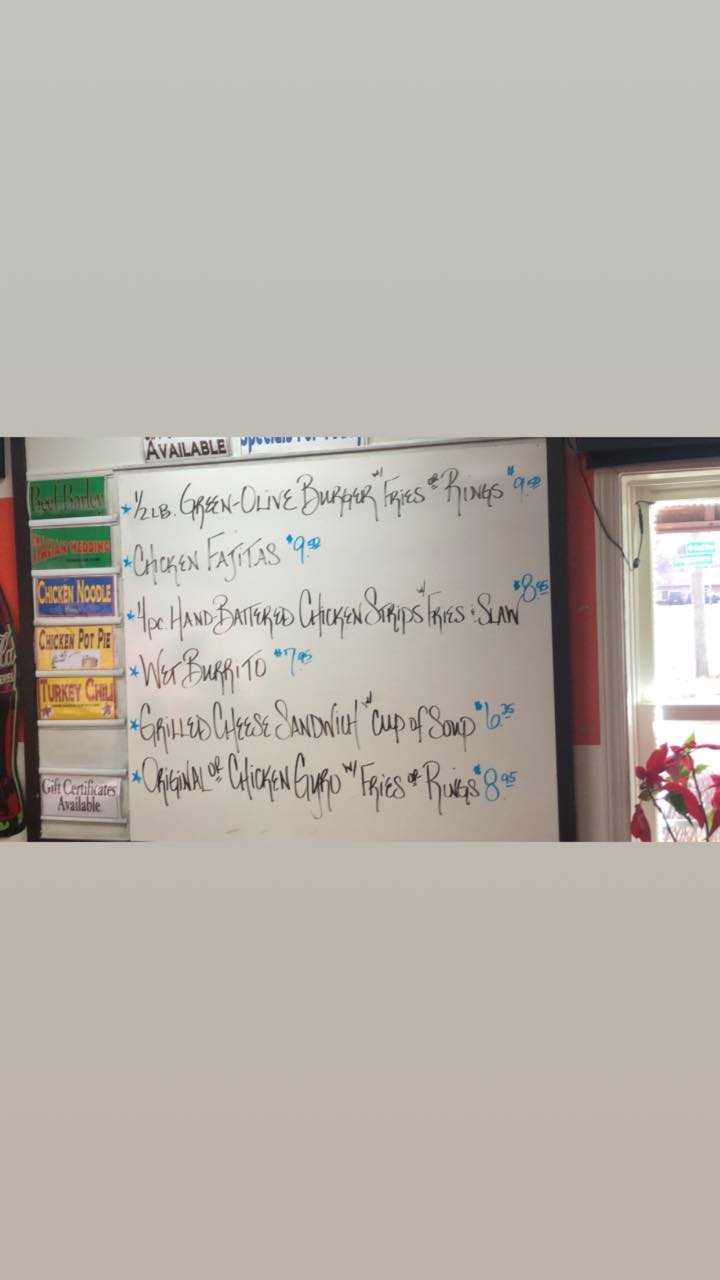 AVAILABLE
Specials For Today
Beef Barley
ITALIAN WEDDING
CHICKEN NOODLE
CHICKEN POT PIE
TURKEY CHILI
Gift Certificates
Available
* 1/2 LB. GREEN-OLIVE BURGER W/ FRIES OR RINGS $9.50
* CHICKEN FAJITAS $9.50
* 4pc HAND-BATTERED CHICKEN STRIPS W/ FRIES & SLAW $8.95
* WET BURRITO $7.95
* GRILLED CHEESE SANDWICH W/ CUP OF SOUP $6.25
* ORIGINAL OR CHICKEN GYRO W/ FRIES OR RINGS $8.95